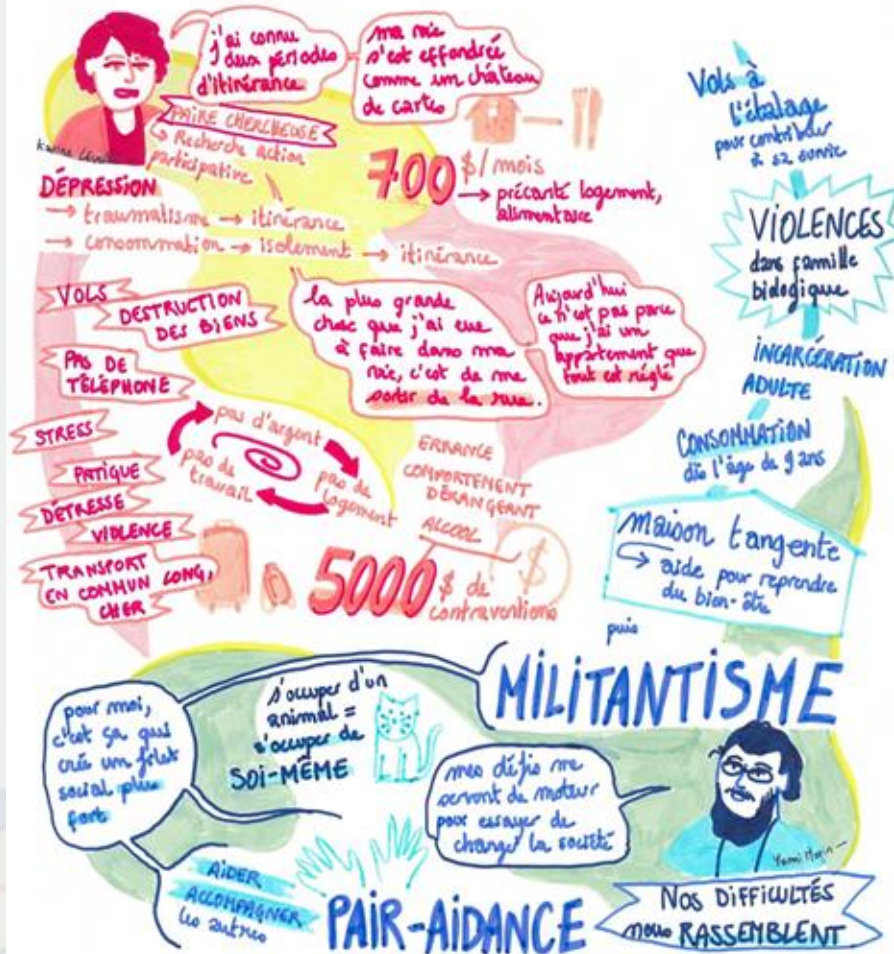 j'ai connu
deux périodes
d'itinérance
ma vie
s'est effondrée
comme un château
de cartes
PAIRE CHERCHEUSE
↳ Recherche action
participative
700 $/mois
→ précarité logement,
alimentaire
DÉPRESSION
→ traumatisme → itinérance
→ consommation → isolement → itinérance
VOLS
DESTRUCTION
DES BIENS
PAS DE
TÉLÉPHONE
STRESS
FATIGUE
DÉTRESSE
VIOLENCE
TRANSPORT
EN COMMUN LONG,
CHER
la plus grande
chose que j'ai eue
à faire dans ma
vie, c'est de me
sortir de la rue.
Aujourd'hui
ce n'est pas parce
que j'ai un
appartement que
tout est réglé
pas d'argent
pas de
logement
pas de
travail
ERRANCE
COMPORTEMENT
DÉRANGEANT
ALCOOL
$
5000 $ de
contraventions
Vols à
l'étalage
pour contribuer
à sa survie
VIOLENCES
dans famille
biologique
INCARCÉRATION
ADULTE
CONSOMMATION
dès l'âge de 9 ans
maison tangente
↪ aide pour reprendre
du bien-être
puis
MILITANTISME
pour moi,
c'est ça qui
crée un filet
social plus
fort
s'occuper d'un
animal =
s'occuper de
SOI-MÊME
mes défis me
servent de moteur
pour essayer de
changer la société
AIDER
ACCOMPAGNER
les autres
PAIR-AIDANCE
NOS DIFFICULTÉS
nous RASSEMBLENT